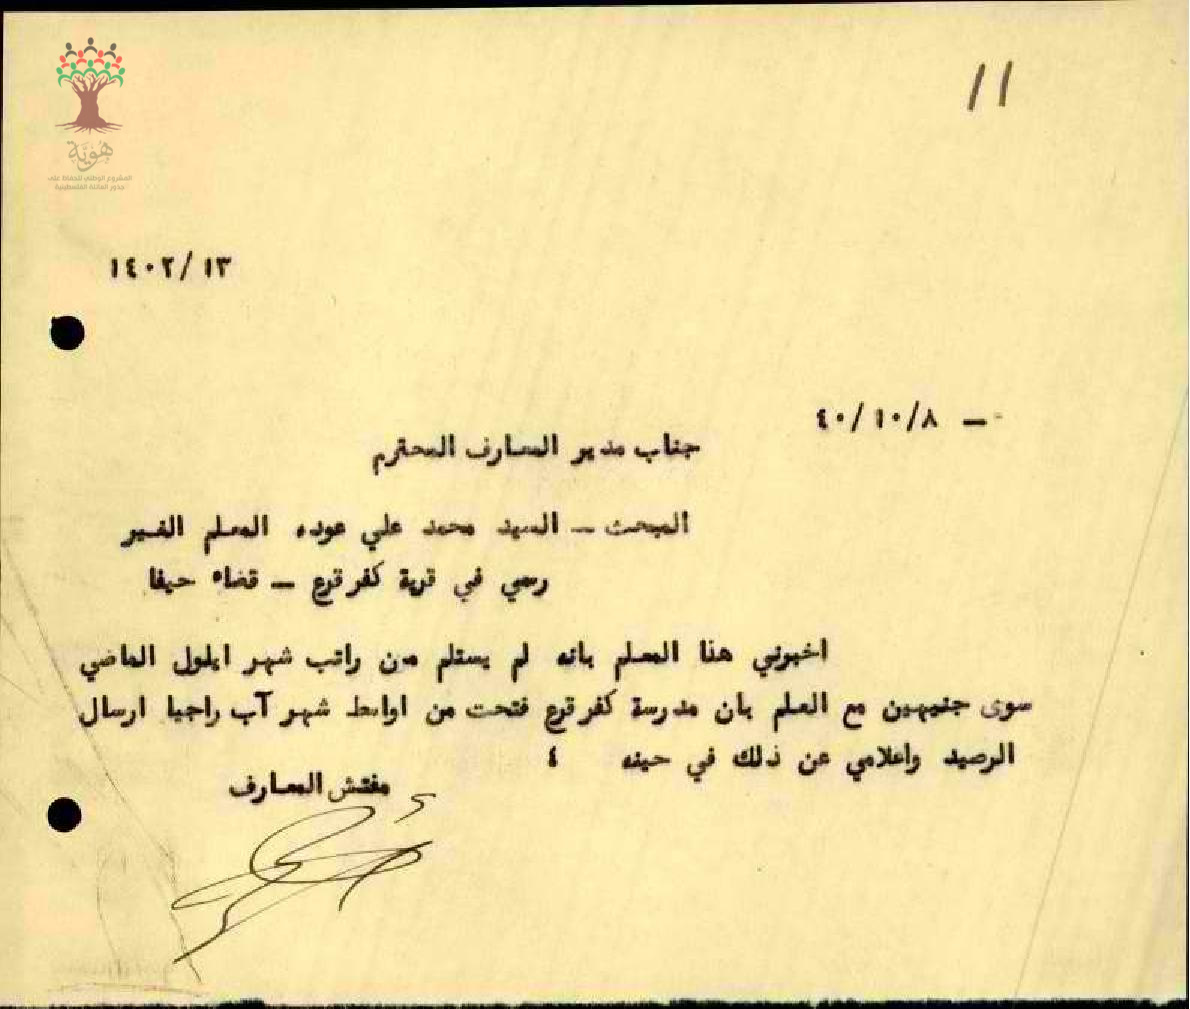 11
هوية
المشروع الوطني للحفاظ على
جذور العائلة الفلسطينية
١٤٠٢/ ١٣
٤٠/١٠/٨ –
جناب مدير المعارف المحترم
المبحث – السيد محمد علي عوده المعلم الغير
رسمي في قرية كفر قرع – قضاء حيفا
اخبرني هذا المعلم بانه لم يستلم من راتب شهر ايلول الماضي
سوى جنيهين مع العلم بان مدرسة كفر قرع فتحت من اواسط شهر آب راجيا ارسال
الرصيد واعلامي عن ذلك في حينه ٤
مفتش المعارف